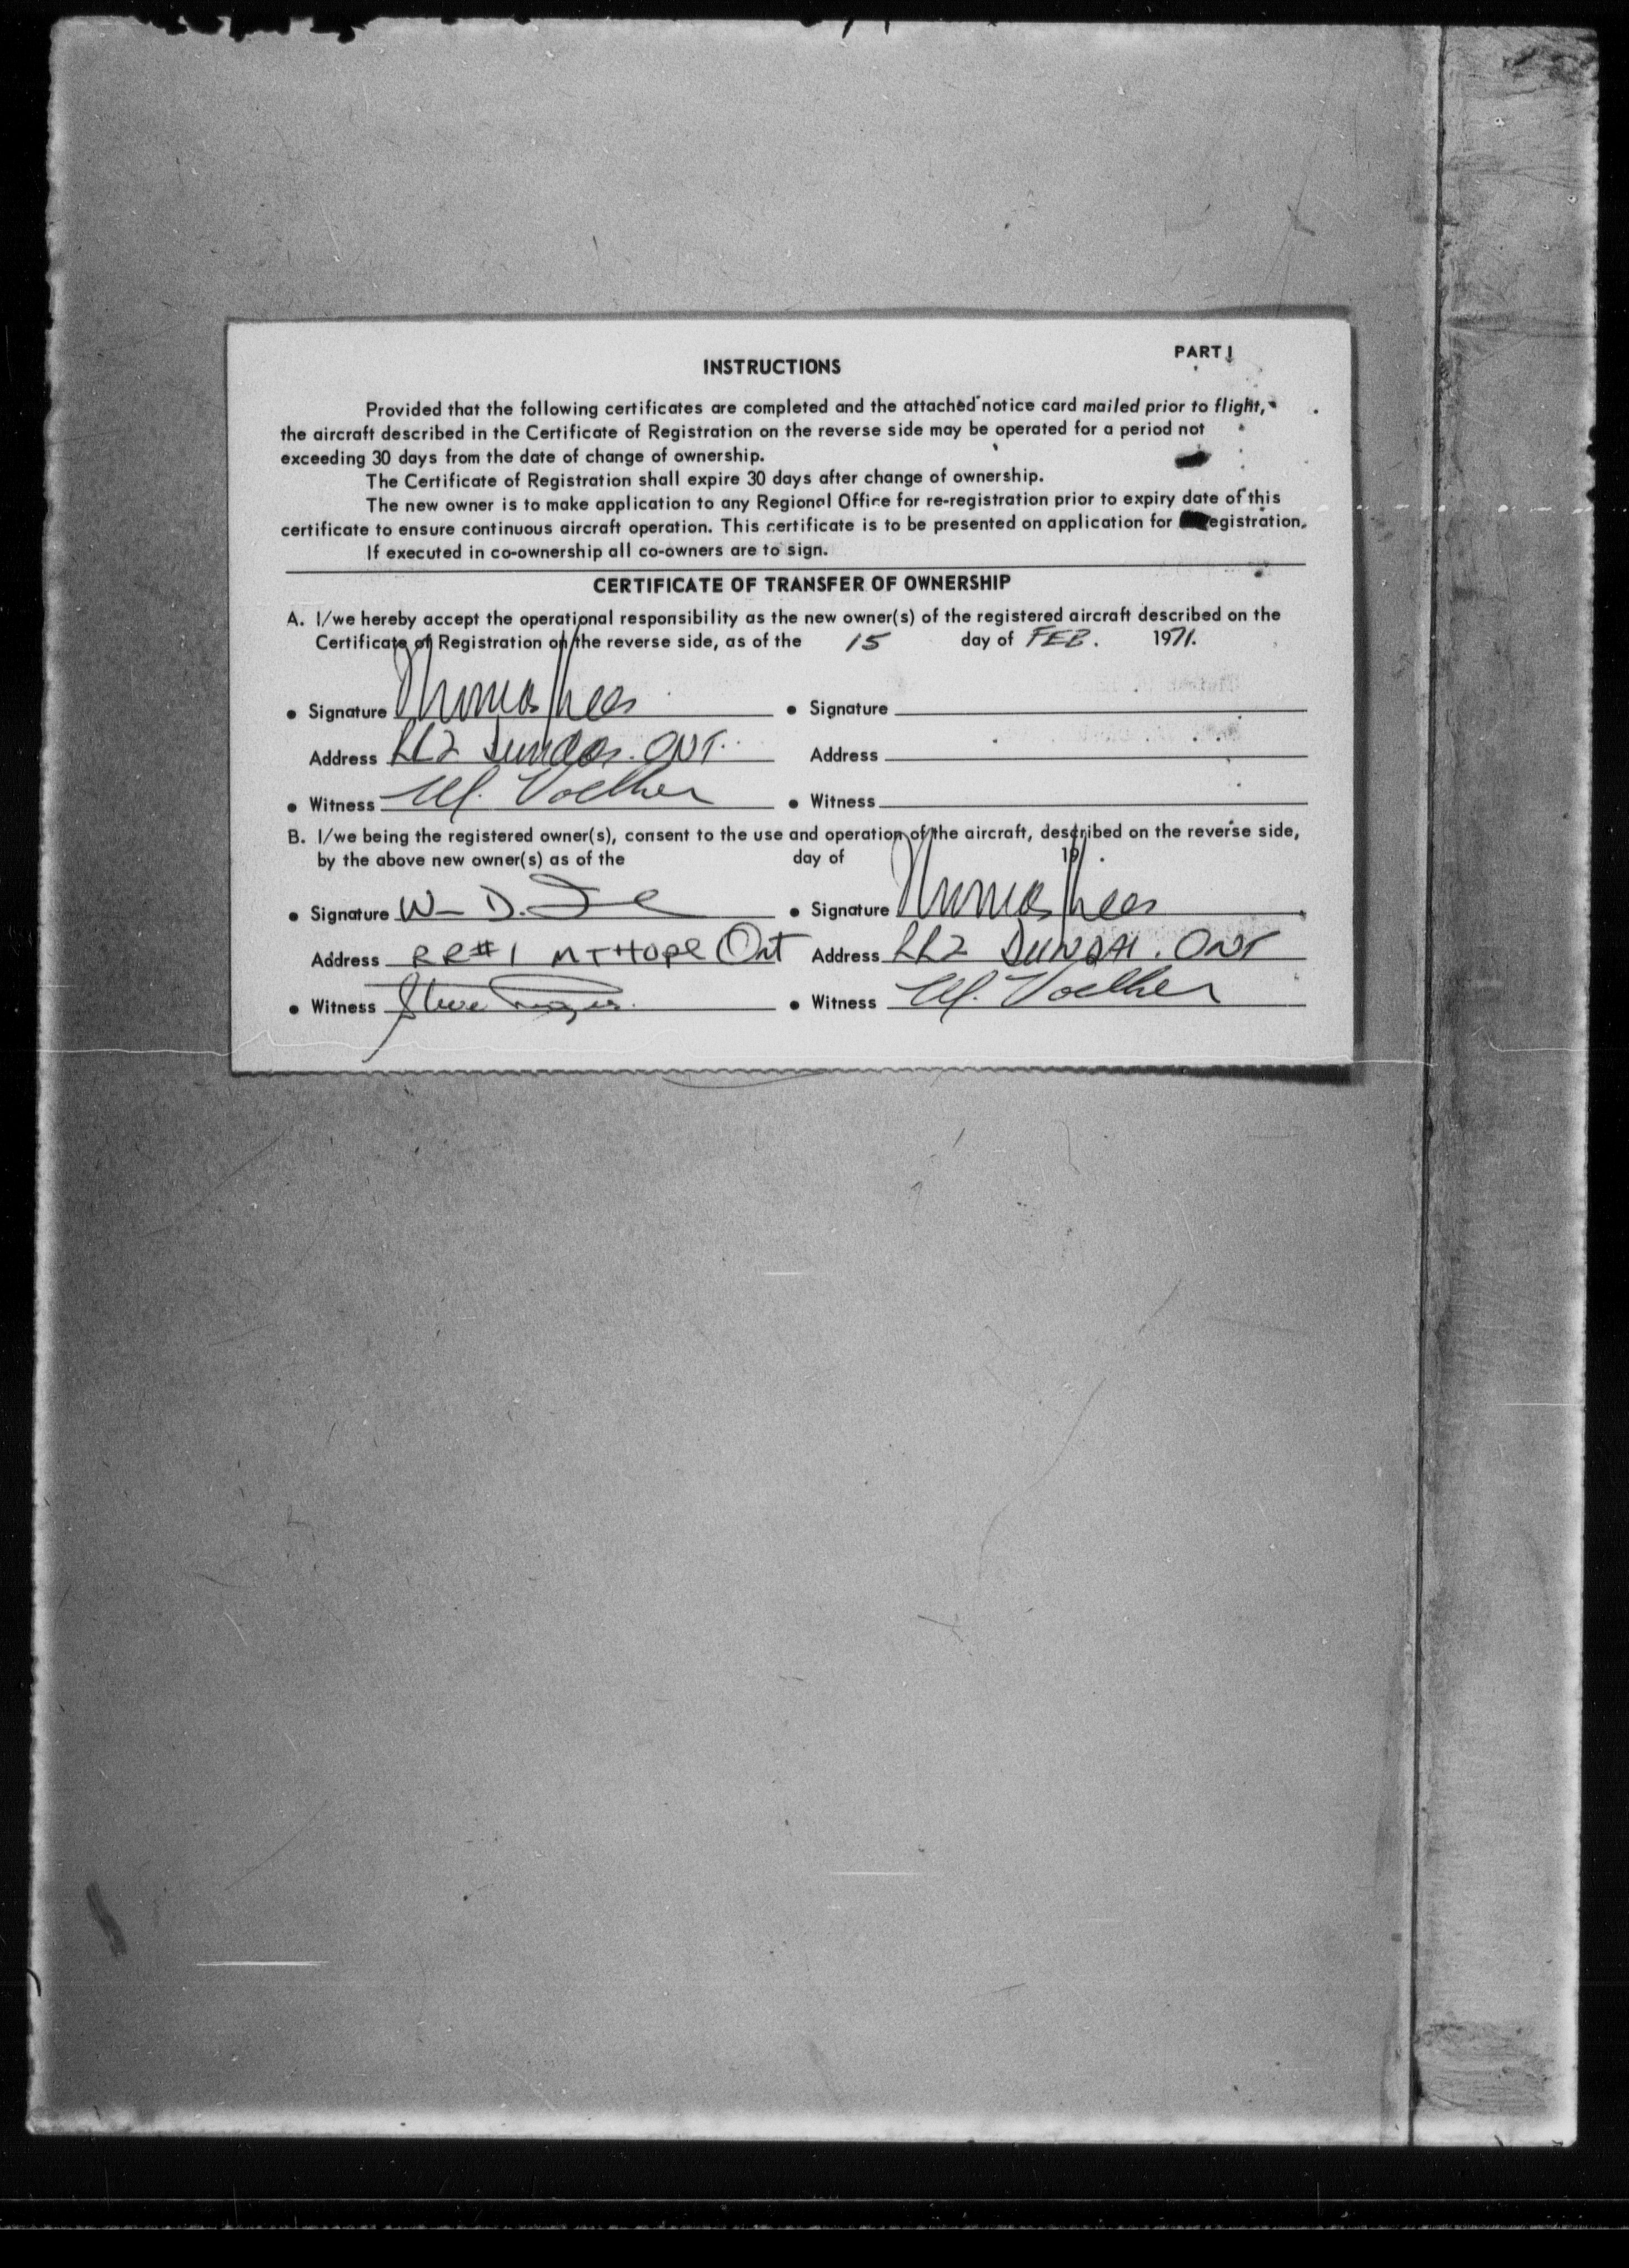 PART I
INSTRUCTIONS
Provided that the following certificates are completed and the attached notice card mailed prior to flight,
the aircraft described in the Certificate of Registration on the reverse side may be operated for a period not
exceeding 30 days from the date of change of ownership.
The Certificate of Registration shall expire 30 days after change of ownership.
The new owner is to make application to any Regional Office for re-registration prior to expiry date of this
certificate to ensure continuous aircraft operation. This certificate is to be presented on application for egistration.
If executed in co-ownership all co-owners are to sign.
CERTIFICATE OF TRANSFER OF OWNERSHIP
A. I/we hereby accept the operational responsibility as the new owner(s) of the registered aircraft described on the
Certificate of Registration on the reverse side, as of the 15 day of FEB. 1971.
• Signature Thomas • Signature
Address RR2 Dundas. ONT. Address
• Witness M. Voelker • Witness
B. I/we being the registered owner(s), consent to the use and operation of the aircraft, described on the reverse side,
by the above new owner(s) as of the day of 19 .
• Signature W D. • Signature Thomas
Address RR#1 MT Hope Ont Address RR2 DUNDAS. ONT
• Witness Steve • Witness M. Voelker